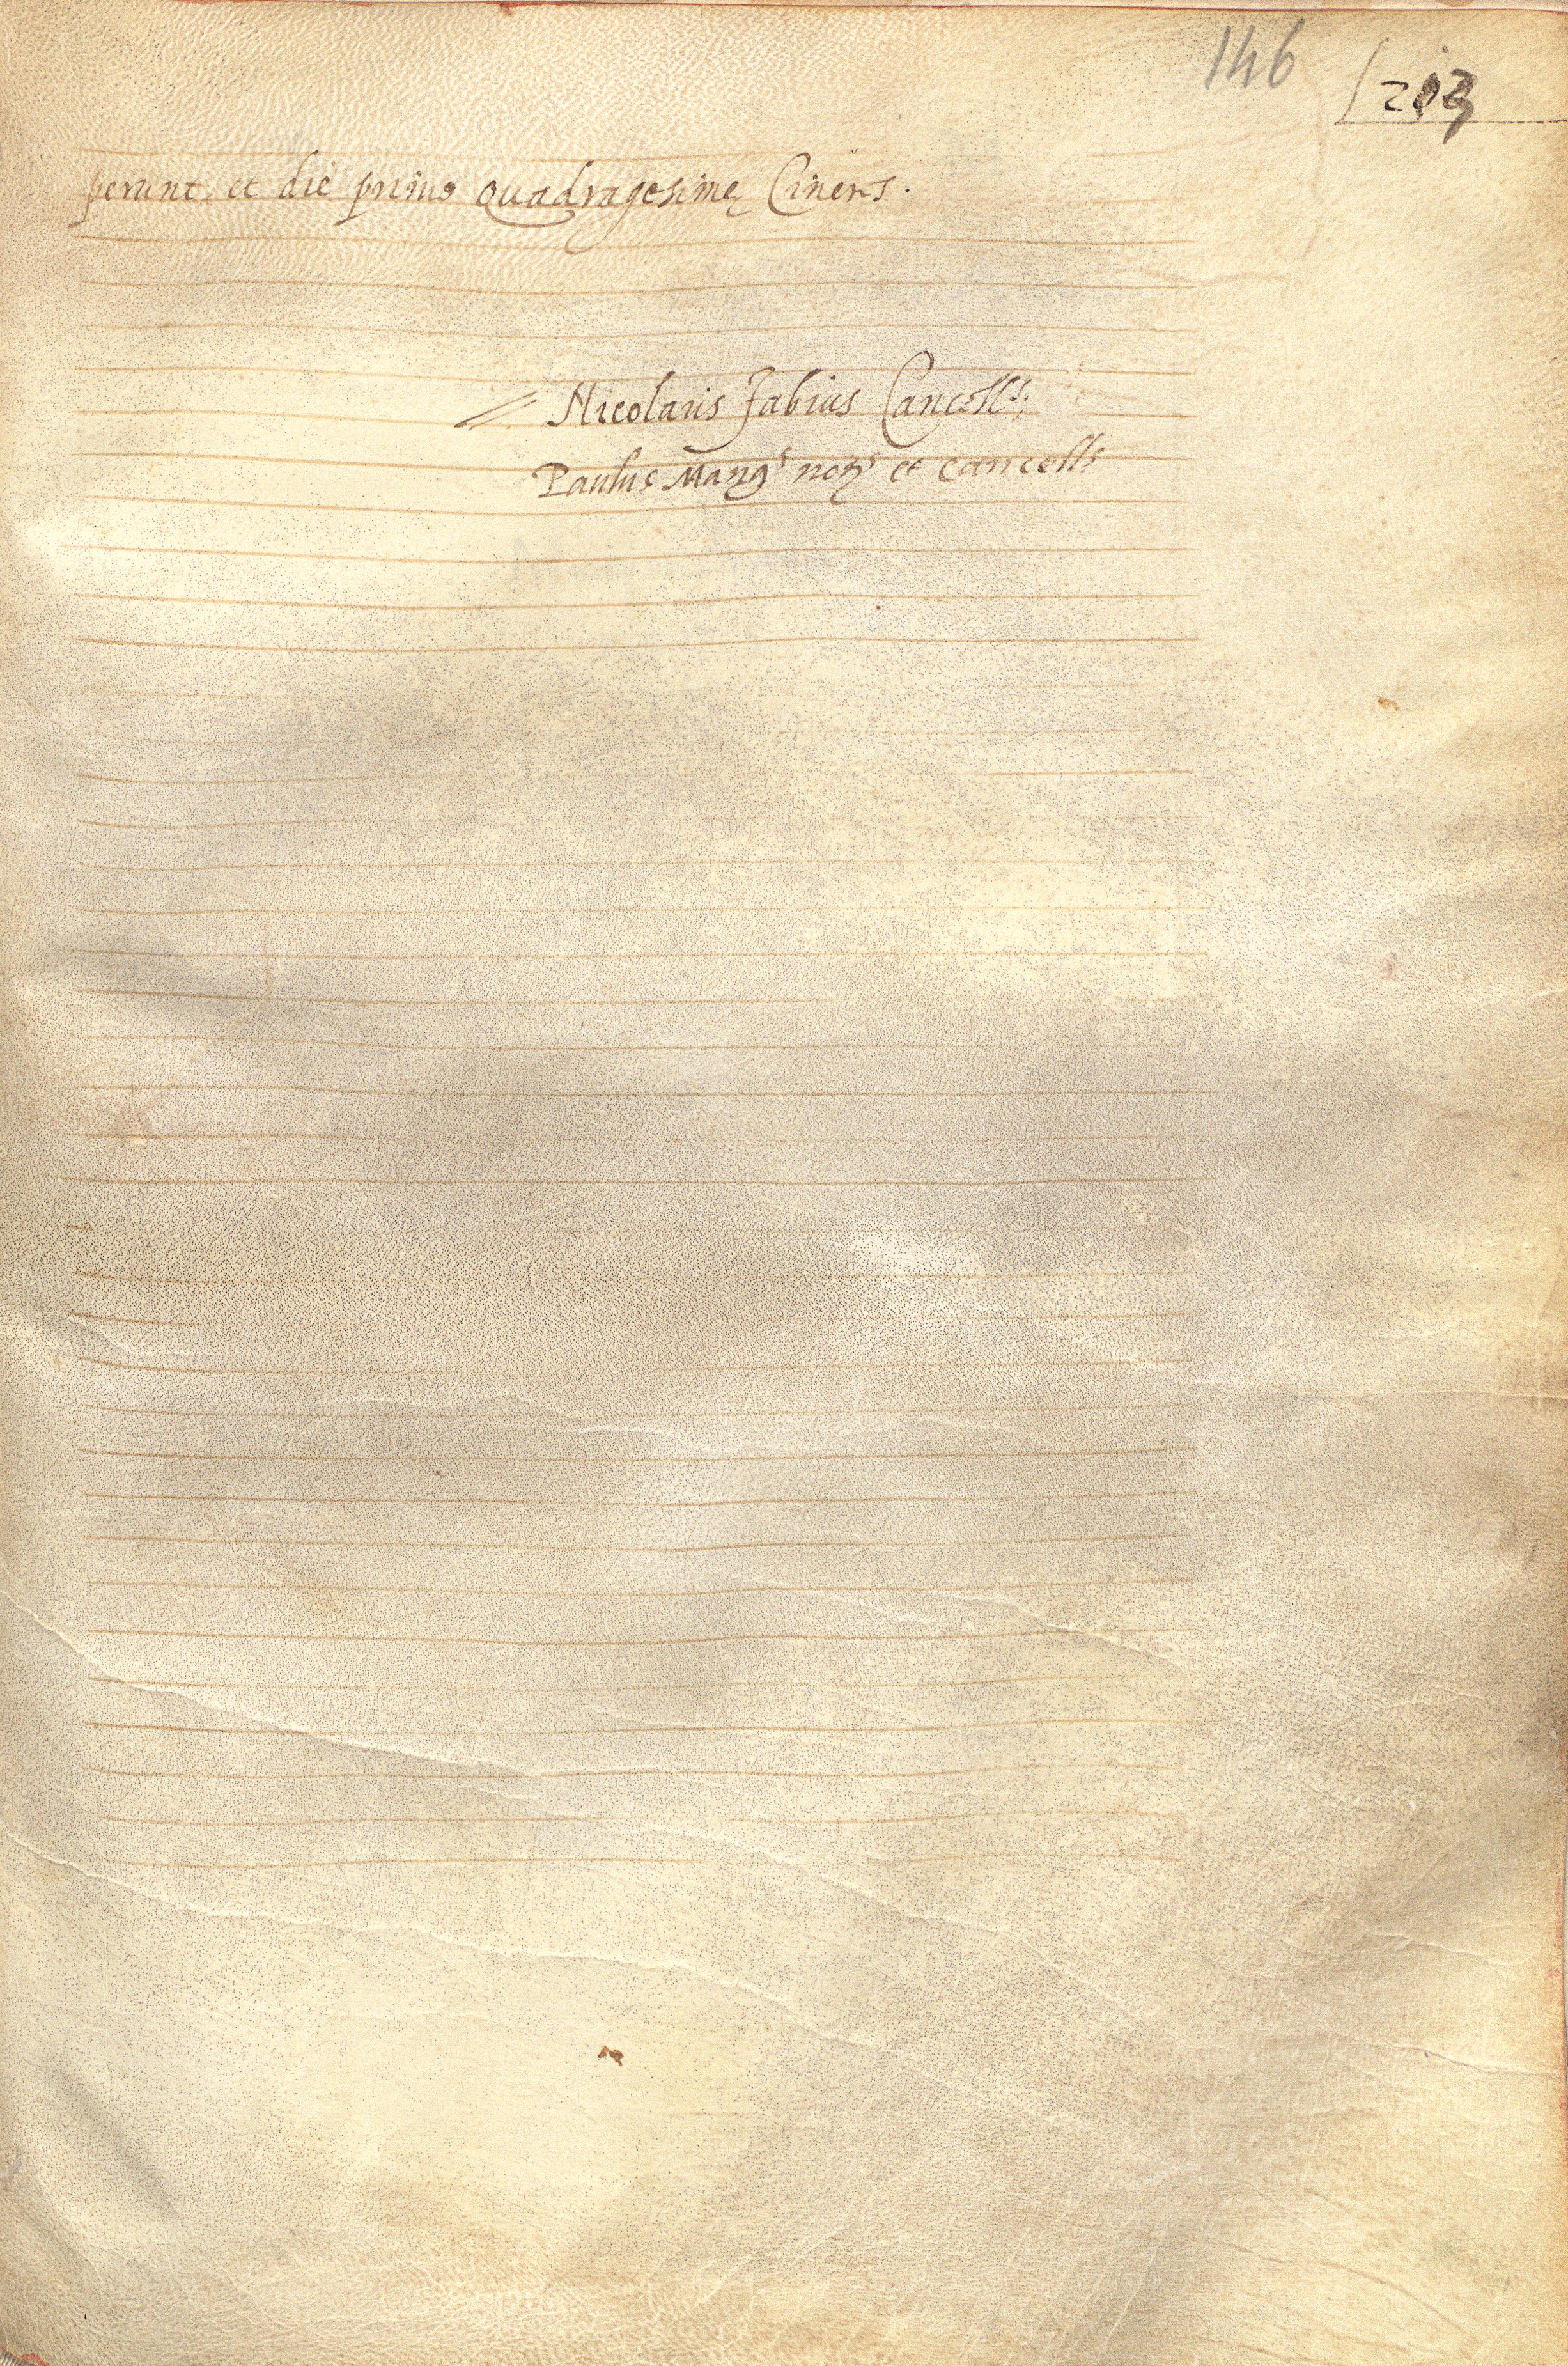 146
203
perunt, et die primo Quadragesimę Ciners.
Nicolaus Fabius Cancell.s
Paulus not.s et cancell.s